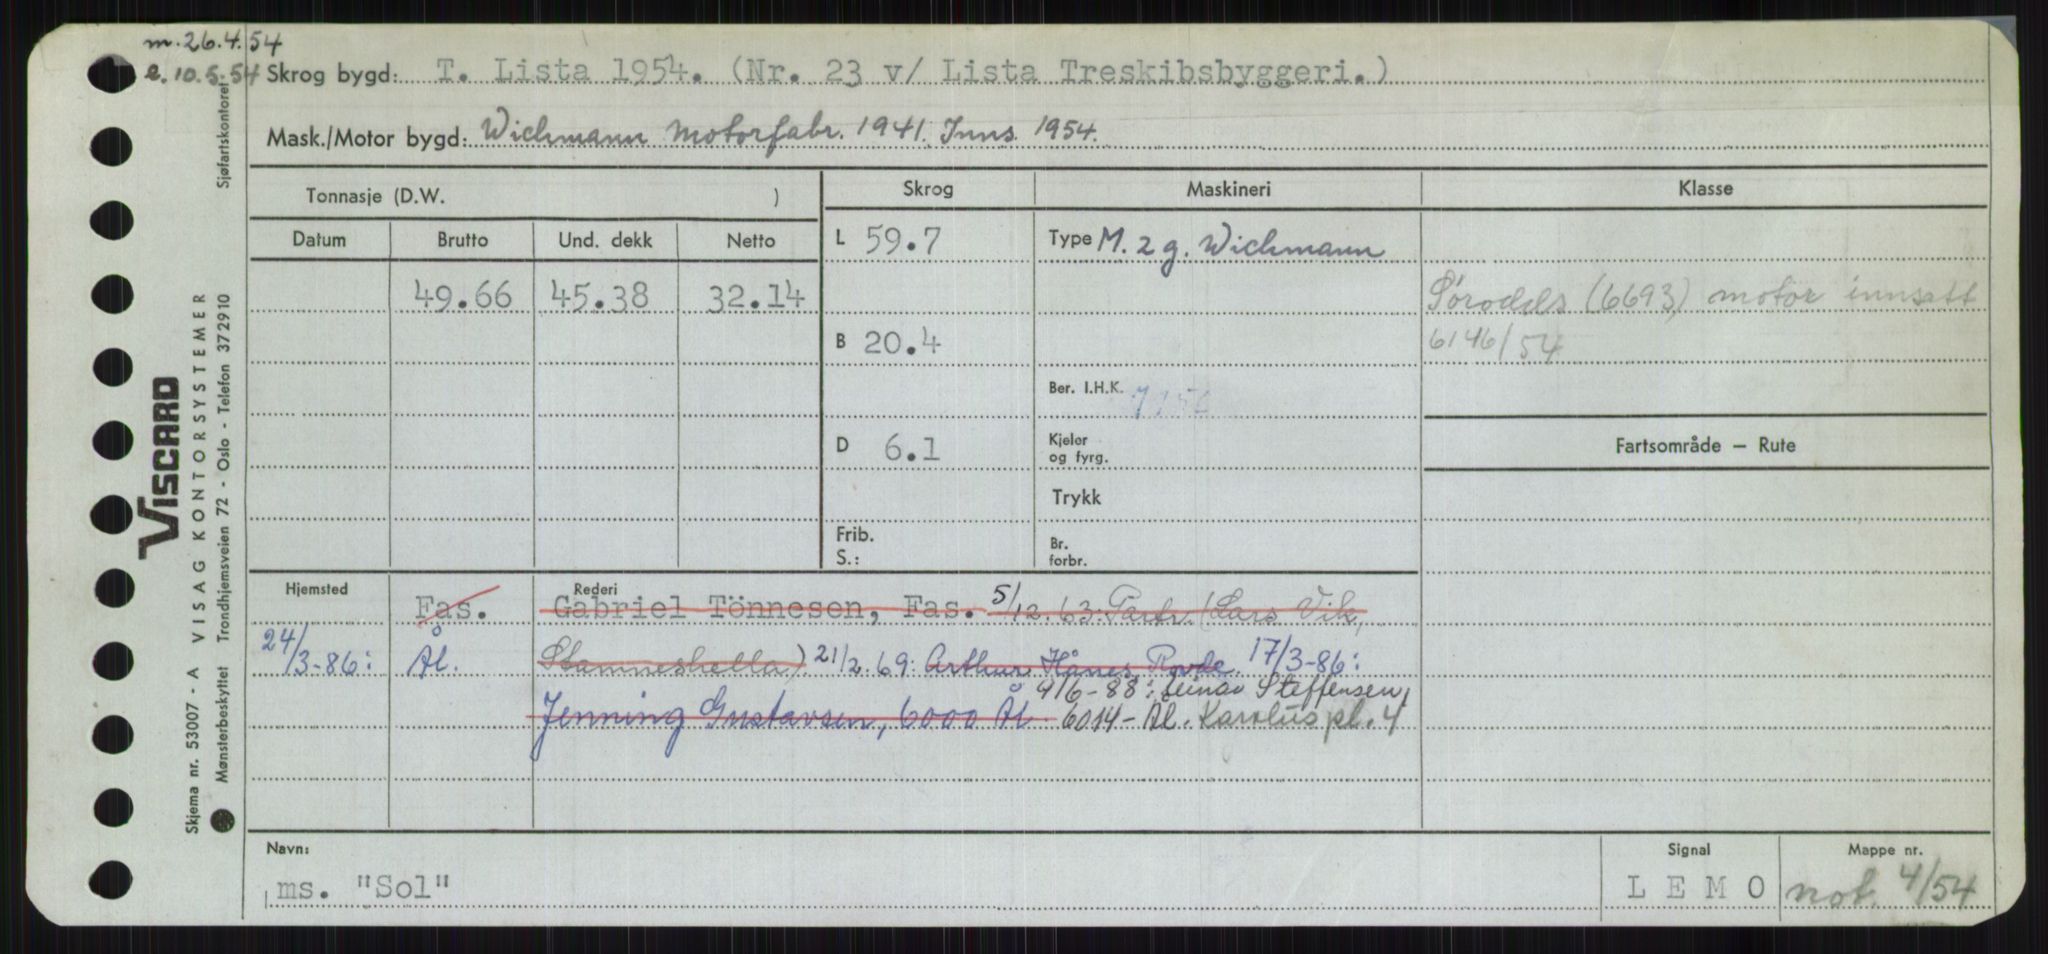 m. 26.4.54
e. 10.5.54
Skrog bygd: T. Lista 1954. (Nr. 23 v/ Lista Treskibsbyggeri.)
Mask./Motor bygd: Wichmann Motorfabr. 1941. Inns. 1954.
Tonnasje (D.W. )
Skrog
Maskineri
Klasse
Datum
Brutto
Und. dekk
Netto
L 59.7
Type M. 2 g. Wichmann
49.66 45.38 32.14
(6693) motor innsatt
6146/54
B 20.4
Ber. I.H.K.
D 6.1
Kjeler og fyrg.
Fartsområde – Rute
Trykk
Frib.
S.:
Br. forbr.
Hjemsted
Rederi
Fas. Gabriel Tönnesen, Fas. 5/12.63: Partr. (Lars Vik,
24/3-86: Ål. Stamneshella). 21/2.69: Arthur Hånes, Rovde. 17/3-86:
9/6-88: Einar Steffensen,
Jenning Gustavsen, 6000 Ål 6014 - Ål. Karolus pl. 4
Navn:
ms. "Sol"
Signal
L E M O
Mappe nr.
not. 4/54
VISCARD
VISAG KONTORSYSTEMER
Skjema nr. 53007 - A
Trondhjemsveien 72 - Oslo - Telefon 372910
Mønsterbeskyttet
Sjøfartskontoret